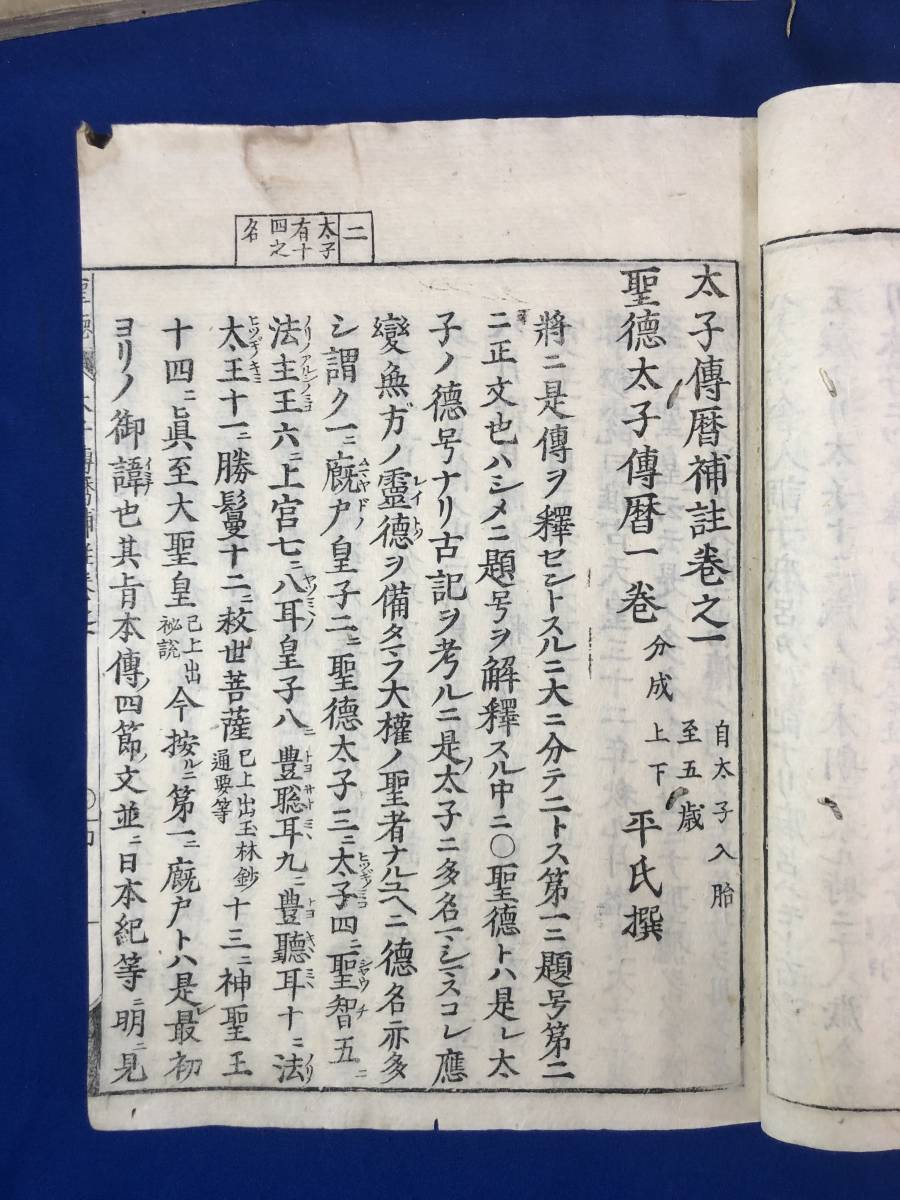 二
太子
有十
四之
名
太子傳暦補註巻之一
自太子入胎
至五歳
聖德太子傳暦一巻
分成
上下
平氏撰
將ニ是傳ヲ釋セントスルニ大ニ分テ二トス第一ニ題号第二
ニ正文也ハシメニ題号ヲ解釋スル中ニ〇聖德トハ是レ太
子ノ德号ナリ古記ヲ考ルニ是太子ニ多名マシマスコレ應
變無方ノ靈德ヲ備タマフ大權ノ聖者ナルユヘニ德名亦多
シ謂ク一ニ廐戸皇子二ニ聖德太子三ニ太子四ニ聖智五ニ
法主王六ニ上宮七ニ八耳皇子八ニ豊聡耳九ニ豊聽耳十ニ法
太王十一ニ勝鬘十二ニ救世菩薩
已上出玉林鈔
通要等
十三ニ神聖王
十四ニ眞至大聖皇
已上出
祕説
今按ルニ第一ニ廐戸トハ是レ最初
ヨリノ御諱也其旨本傳ノ四節ノ文並ニ日本紀等ニ明ニ見